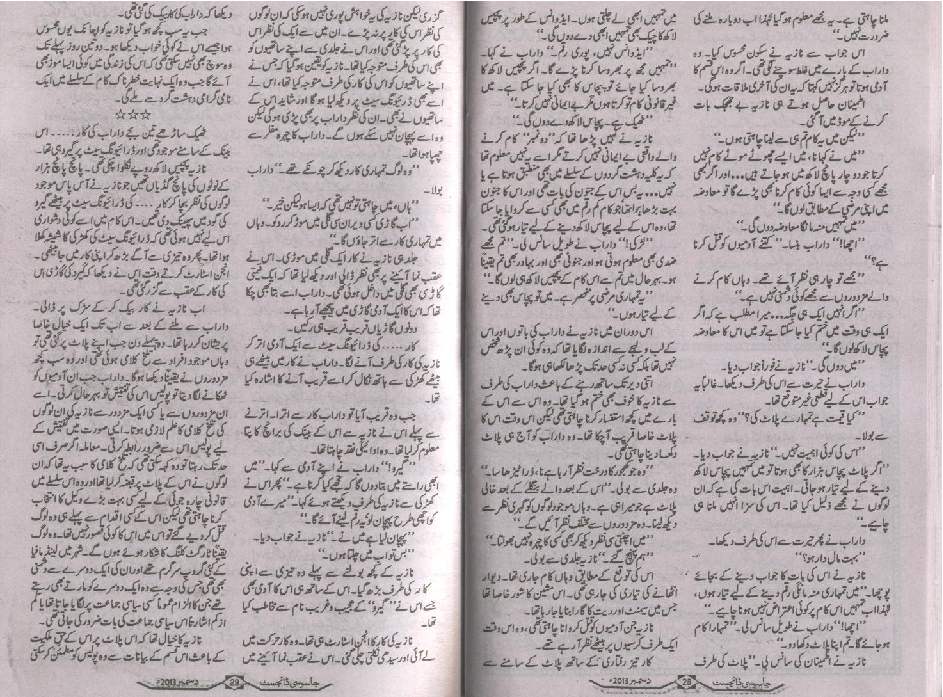 ملنا چاہتی ہے۔ یہ مجھے معلوم ہو گیا لہٰذا اب دوبارہ ملنے کی
ضرورت نہیں۔"
اس جواب سے نازیہ نے سکون محسوس کیا۔ وہ
داراب کے بارے میں غلط سوچنے لگی تھی۔ اگر وہ اس قسم کا
آدمی ہوتا تو ہرگز نہیں کہتا کہ یہ ان کی آخری ملاقات ہوگی۔
اطمینان حاصل ہوتے ہی نازیہ بے جھجک بات
کرنے کے موڈ میں آ گئی۔
"لیکن میں یہ کام تم ہی سے لینا چاہتی ہوں۔"
"میں نے کہا نا، میں ایسے چھوٹے موٹے کام نہیں
کرتا جو دو چار پانچ لاکھ میں ہو جاتے ہیں... اور اگر کبھی
مجھے کسی وجہ سے ایسا کوئی کام کرنا بھی پڑے گا تو معاوضہ
میں اپنی مرضی کے مطابق لوں گا۔"
"میں تمہیں منہ مانگا معاوضہ دوں گی۔"
"اچھا!" داراب ہنسا۔ "کتنے آدمیوں کو قتل کرنا
ہے؟"
"مجھے تو چار ہی نظر آئے تھے۔ وہاں کام کرنے
والے مزدوروں سے مجھے کوئی دشمنی نہیں ہے۔"
"اگر انہیں ایک ہی جگہ... میرا مطلب ہے کہ اگر
ایک ہی وقت میں ختم کیا جا سکتا ہے تو میں اس کا معاوضہ
پچاس لاکھ لوں گا۔"
"میں دوں گی۔" نازیہ نے فوراً جواب دیا۔
داراب نے حیرت سے اس کی طرف دیکھا۔ غالباً یہ
جواب اس کے لیے قطعی غیر متوقع تھا۔
"کیا قیمت ہے تمہارے پلاٹ کی؟" وہ کچھ توقف
سے بولا۔
"اس کی کوئی اہمیت نہیں۔" نازیہ نے جواب دیا۔
"اگر پلاٹ پچاس ہزار کا بھی ہوتا تو میں تمہیں پچاس لاکھ
دینے کے لیے تیار ہو جاتی۔ اہمیت اس بات کی ہے کہ ان
لوگوں نے مجھے ذلیل کیا تھا۔ اس کی سزا انہیں ملنا ہی
چاہیے۔"
داراب نے پھر حیرت سے اس کی طرف دیکھا۔
"بہت مال دار ہو؟"
نازیہ نے اس کی بات کا جواب دینے کے بجائے
پوچھا۔ "میں تمہاری منہ مانگی رقم دینے کے لیے تیار ہوں،
لہٰذا اب تمہیں اس کام پر کوئی اعتراض نہیں ہونا چاہیے۔"
"اچھا!" داراب نے طویل سانس لی۔ "تمہارا کام
ہو جائے گا۔ تم اپنا پلاٹ دکھا دو۔"
نازیہ نے اطمینان کی سانس لی۔ "پلاٹ کی طرف
میں تمہیں ابھی لے چلتی ہوں۔ ایڈوانس کے طور پر پچیس
لاکھ کا چیک بھی تمہیں ابھی دے دوں گی۔"
"ایڈوانس نہیں، پوری رقم۔" داراب نے کہا۔
"تمہیں مجھ پر بھروسا کرنا پڑے گا۔ اگر پچیس لاکھ کا
بھروسا کیا جائے تو پچاس کا بھی کیا جا سکتا ہے۔ میں
غیر قانونی کام تو کرتا ہوں مگر بے ایمانی نہیں کرتا۔"
"ٹھیک ہے۔ پچاس لاکھ دے دوں گی۔"
نازیہ نے کہیں پڑھا تھا کہ "دو نمبر" کام کرنے
والے واقعی بے ایمانی نہیں کرتے مگر اسے یہ نہیں معلوم تھا
کہ یہ کلیہ دہشت گردوں کے سلسلے میں بھی منطبق ہوتا ہے یا
نہیں... یہ بس اس کے جنون کی بات تھی اور اس کا جنون
بہت بڑھا ہوا تھا جو کام کم رقم میں بھی کسی سے کروایا جا سکتا
تھا، وہ اس کے لیے پچاس لاکھ دینے کے لیے تیار ہو گئی تھی۔
"لڑکی!" داراب نے طویل سانس لی۔ "تم مجھے
ضدی بھی معلوم ہوتی ہو اور جنونی بھی اور بہادر بھی تم یقیناً
ہو۔ بہرحال میں تم سے اس کام کے پچیس لاکھ ہی لوں گا۔"
"یہ تمہاری مرضی پر منحصر ہے۔ میں تو پچاس بھی دینے
کے لیے تیار ہوں۔"
اس دوران میں نازیہ نے داراب کی باتوں اور اس
کے لب و لہجے سے اندازہ لگایا تھا کہ وہ کوئی ان پڑھ شخص
نہیں تھا بلکہ کسی نہ کسی حد تک پڑھا لکھا ہی ہوگا۔
اتنی دیر تک ساتھ رہنے کے باعث داراب کی طرف
سے نازیہ کا خوف بھی ختم ہو گیا تھا۔ وہ اس سے اس کے
بارے میں کچھ استفسار کرنا چاہتی تھی لیکن اس وقت اس کا
پلاٹ خاصا قریب آ چکا تھا۔ وہ داراب کو آج ہی پلاٹ
دکھا دینا چاہتی تھی۔
"وہ جو کھجور کا درخت نظر آ رہا ہے نا، ذرا ٹیڑھا سا۔"
وہ جلدی سے بولی۔ "اس کے بعد والے بنگلے کے بعد خالی
پلاٹ ہے جو میرا ہی ہے۔ وہاں موجود لوگوں کو گہری نظر سے
دیکھ لینا۔ وہ مزدوروں سے مختلف نظر آئیں گے۔"
"میں اچٹتی سی نظر دیکھ کر بھی کسی کا چہرہ نہیں بھولتا۔"
"ہم پہنچ گئے۔" نازیہ جلدی سے بولی۔
اس کی توقع کے مطابق وہاں کام جاری تھا۔ دیوار
اٹھانے کی تیاری کی جا رہی تھی۔ اس مشین کا شور خاصا تھا
جس میں سیمنٹ اور ریت کا گارا بنایا جا رہا تھا۔
نازیہ جن آدمیوں کو قتل کروانا چاہتی تھی، وہ اس وقت
ایک طرف کرسیوں پر بیٹھے نظر آ رہے تھے۔
کار تیز رفتاری کے ساتھ پلاٹ کے سامنے سے
جاسوسی ڈائجسٹ 28 دسمبر 2013ء
گزری لیکن نازیہ کی یہ خواہش پوری نہیں ہو سکی کہ ان لوگوں
کی نظر اس کی کار پر نہ پڑے۔ ان میں سے ایک کی نظر اس
کی کار پر پڑ گئی تھی اور اس نے جلدی سے اپنے ساتھیوں کو
بھی اس طرف متوجہ کیا تھا۔ نازیہ کو یقین ہو گیا کہ جس نے
اپنے ساتھیوں کو اس کی کار کی طرف متوجہ کیا تھا، اس نے
اسے بھی ڈرائیونگ سیٹ پر دیکھ لیا ہوگا اور شاید اس کے
ساتھیوں نے بھی۔ ان کی نظر داراب پر بھی پڑی ہوگی لیکن
وہ اسے پہچان نہیں سکے ہوں گے۔ داراب کا چہرہ مفلر سے
چھپا ہوا تھا۔
"وہ لوگ تمہاری کار دیکھ کر چونکے تھے۔" داراب
بولا۔
"ہاں، میں چاہتی تو نہیں تھی کہ ایسا ہو لیکن خیر۔"
"اب گاڑی کسی ویران گلی میں موڑ کر روکو۔ وہاں
میں تمہاری کار سے اتر جاؤں گا۔"
جلد ہی نازیہ نے کار ایک گلی میں موڑی۔ اس نے
عقب نما آئینے پر بھی نظر ڈالی اور دیکھ لیا تھا کہ ایک قیمتی
گاڑی بھی گلی میں داخل ہوئی تھی۔ داراب اسے بتا بھی چکا
تھا کہ اس کا ایک آدمی گاڑی میں پیچھے آ رہا ہے۔
دونوں گاڑیاں قریب قریب ہی رکیں۔
کار .... کی ڈرائیونگ سیٹ سے ایک آدمی اتر کر
نازیہ کی کار کی طرف آنے لگا۔ داراب نے کار میں بیٹھے ہی
بیٹھے کھڑکی سے ہاتھ نکال کر اسے قریب آنے کا اشارہ کیا
تھا۔
جب وہ قریب آیا تو داراب کار سے اترا۔ اترنے
سے پہلے اس نے نازیہ سے اس کے بینک کی برانچ کا پتا
معلوم کر لیا تھا۔ وہ ادائیگی نقد چاہتا تھا۔
"گیرو!" داراب نے اپنے آدمی سے کہا۔ "میں
ابھی راستے میں بتا دوں گا کہ تجھے کیا کرنا ہے۔" پھر اس نے
کھڑکی سے نازیہ کی طرف دیکھتے ہوئے کہا۔ "میرے آدمی
کو اچھی طرح پہچان لو۔ یہ رقم لینے آئے گا۔"
"پہچان لیا ہے میں نے۔" نازیہ نے جواب دیا۔
"بس تو اب میں چلتا ہوں۔"
نازیہ کے کچھ بولنے سے پہلے وہ تیزی سے اپنی
کار کی طرف بڑھ گیا۔ اس کے ساتھ ہی اس کا آدمی بھی
جسے اس نے "گیرو" کے عجیب و غریب نام سے مخاطب کیا
تھا۔
نازیہ کی کار کا انجن اسٹارٹ ہی تھا۔ وہ کار حرکت میں
لے آئی اور سیدھی نکلتی چلی گئی۔ اس نے عقب نما آئینے میں
دیکھا کہ داراب کی کار بیک کی گئی تھی۔
جب یہ سب کچھ ہو گیا تو نازیہ کو اچانک یوں محسوس
ہوا جیسے اس نے کوئی خواب دیکھا ہو۔ دو تین روز پہلے تک
وہ سوچ بھی نہیں سکتی تھی کہ اس کی زندگی میں کوئی ایسا موڑ بھی
آئے گا جب وہ ایک نہایت خطرناک کام کے سلسلے میں ایک
نامی گرامی دہشت گرد سے ملے گی۔
☆☆☆
ٹھیک ساڑھے تین بجے داراب کی کار .... اس
بینک کے سامنے موجود تھی اور ڈرائیونگ سیٹ پر گیرو ہی تھا۔
نازیہ پچیس لاکھ روپے نکلوا چکی تھی۔ پانچ پانچ ہزار
کے نوٹوں کی پانچ گڈیاں تھیں جو نازیہ نے آس پاس موجود
لوگوں کی نظر بچا کر کار .... کی ڈرائیونگ سیٹ پر بیٹھے گیرو
کی گود میں پھینک دی تھیں۔ اس کام میں اسے کوئی دشواری
اس لیے نہیں ہوئی تھی کہ ڈرائیونگ سیٹ کی کھڑکی کا شیشہ کھلا
ہوا تھا۔ پھر وہ تیزی سے آگے بڑھ کر اپنی کار میں جا بیٹھی۔
انجن اسٹارٹ کرتے وقت اس نے دیکھا کہ گیرو کی گاڑی اس
کی کار کے عقب سے گزر گئی تھی۔
اب نازیہ نے کار بیک کر کے سڑک پر ڈالی۔
داراب سے ملنے کے بعد سے اب تک ایک خیال خاصا
پریشان کر رہا تھا۔ وہ پہلے دن جب اپنے پلاٹ پر گئی تھی تو
وہاں موجود افراد سے تلخ کلامی ہوئی تھی اور وہ سب کچھ
مزدوروں نے یقیناً دیکھا ہوگا۔ داراب جب ان آدمیوں کو
ٹھکانے لگا دیتا تو پولیس اس کی تفتیش تو بہرحال کرتی۔ اسے
ان مزدوروں سے یا کسی ایک مزدور سے نازیہ کی ان لوگوں
کی تلخ کلامی کا علم لازمی ہوتا۔ ایسی صورت میں تفتیش کے
لیے پولیس اس سے ضرور رابطہ کرتی۔ معاملہ اگر صرف اسی
حد تک رہتا تو وہ کہہ سکتی تھی کہ تلخ کلامی کا سبب یہ تھا کہ ان
لوگوں نے اس کے پلاٹ پر قبضہ کر لیا تھا اور وہ اس سلسلے میں
قانونی چارہ جوئی کے لیے کسی بہت بڑے وکیل کا انتخاب
کرنا چاہتی تھی لیکن اس کے کسی اقدام سے پہلے ہی وہ لوگ
قتل کر دیے گئے تو اس میں اس کا کوئی قصور نہیں تھا۔ وہ لوگ
یقیناً ٹارگٹ کلنگ کا شکار ہوئے ہوں گے۔ شہر میں لینڈ مافیا
کے کئی گروپ سرگرم تھے اور ان کی ایک دوسرے سے دشمنی
بھی تھی جس کی وجہ سے وہ ایک دوسرے کو مارتے بھی رہتے
تھے جن کا الزام عموماً کسی سیاسی جماعت پر لگایا جاتا تھا یا کم
از کم اشارتاً اس سیاسی جماعت کی بات ضرور کی جاتی تھی۔
نازیہ کا خیال تھا کہ اس پلاٹ پر اس کے حق ملکیت
کے باعث اس قسم کے بیانات سے وہ پولیس کو مطمئن کر سکتی
جاسوسی ڈائجسٹ 29 دسمبر 2013ء